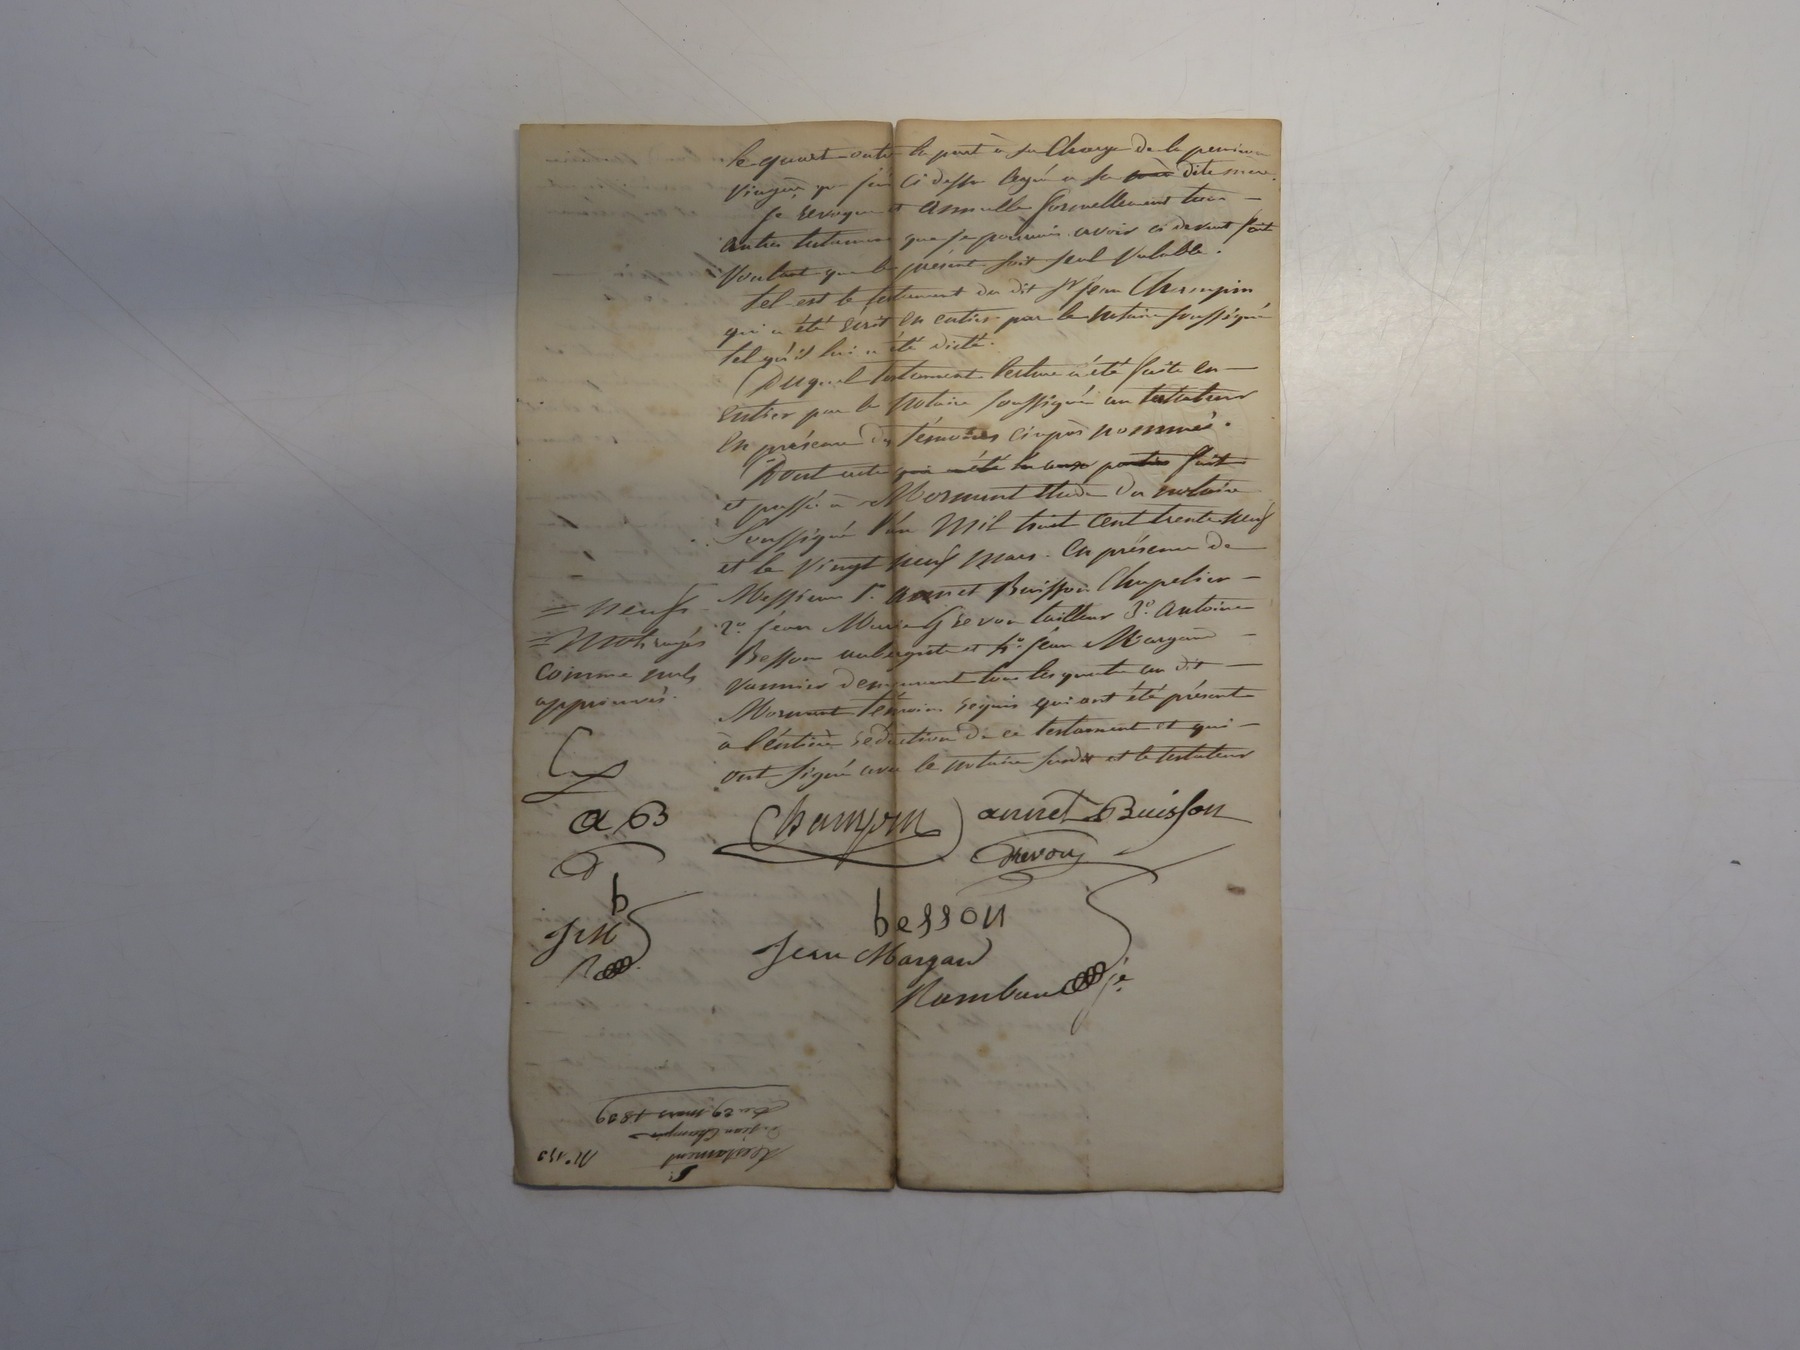 le quart outre la part à sa charge de la pension
viagère que j'ai ci dessu légué a sa dite mere.
Je revoque et annulle formellement tous
autres testamens que je pourrais avoir ci devant fait
voulant que le présent soit seul valable.
tel est le testament du dit Sr jean Champin
qui a été écrit en entier par le notaire soussigné
tel qu'il lui a été dicté.
Duquel testament lecture a été faite en
entier par le notaire soussigné au testateur
en présence des témoins ci après nommés.
Dont acte qui a été lu aux parties fait
et passé à Mornant étude du notaire
soussigné l'an mil huit cent trente neuf
et le vingt neuf mars. en présence de
Messieurs 1º annet Buisson Chapelier
2º jean Marie Grevon tailleur 3º Antoine
Besson aubergiste et 4º jean Margand
vannier demeurant tous les quatre au dit
Mornant témoins requis qui ont été présents
à l'entière rédaction de ce testament et qui
ont signé avec le notaire susdit et le testateur
= neuf
= mots rayés
comme nuls
approuvés.
a B
Champin annet Buisson
b
besson
J M
jean Margand
Nº
Testament
De jean Champin
Du 29 mars 1839